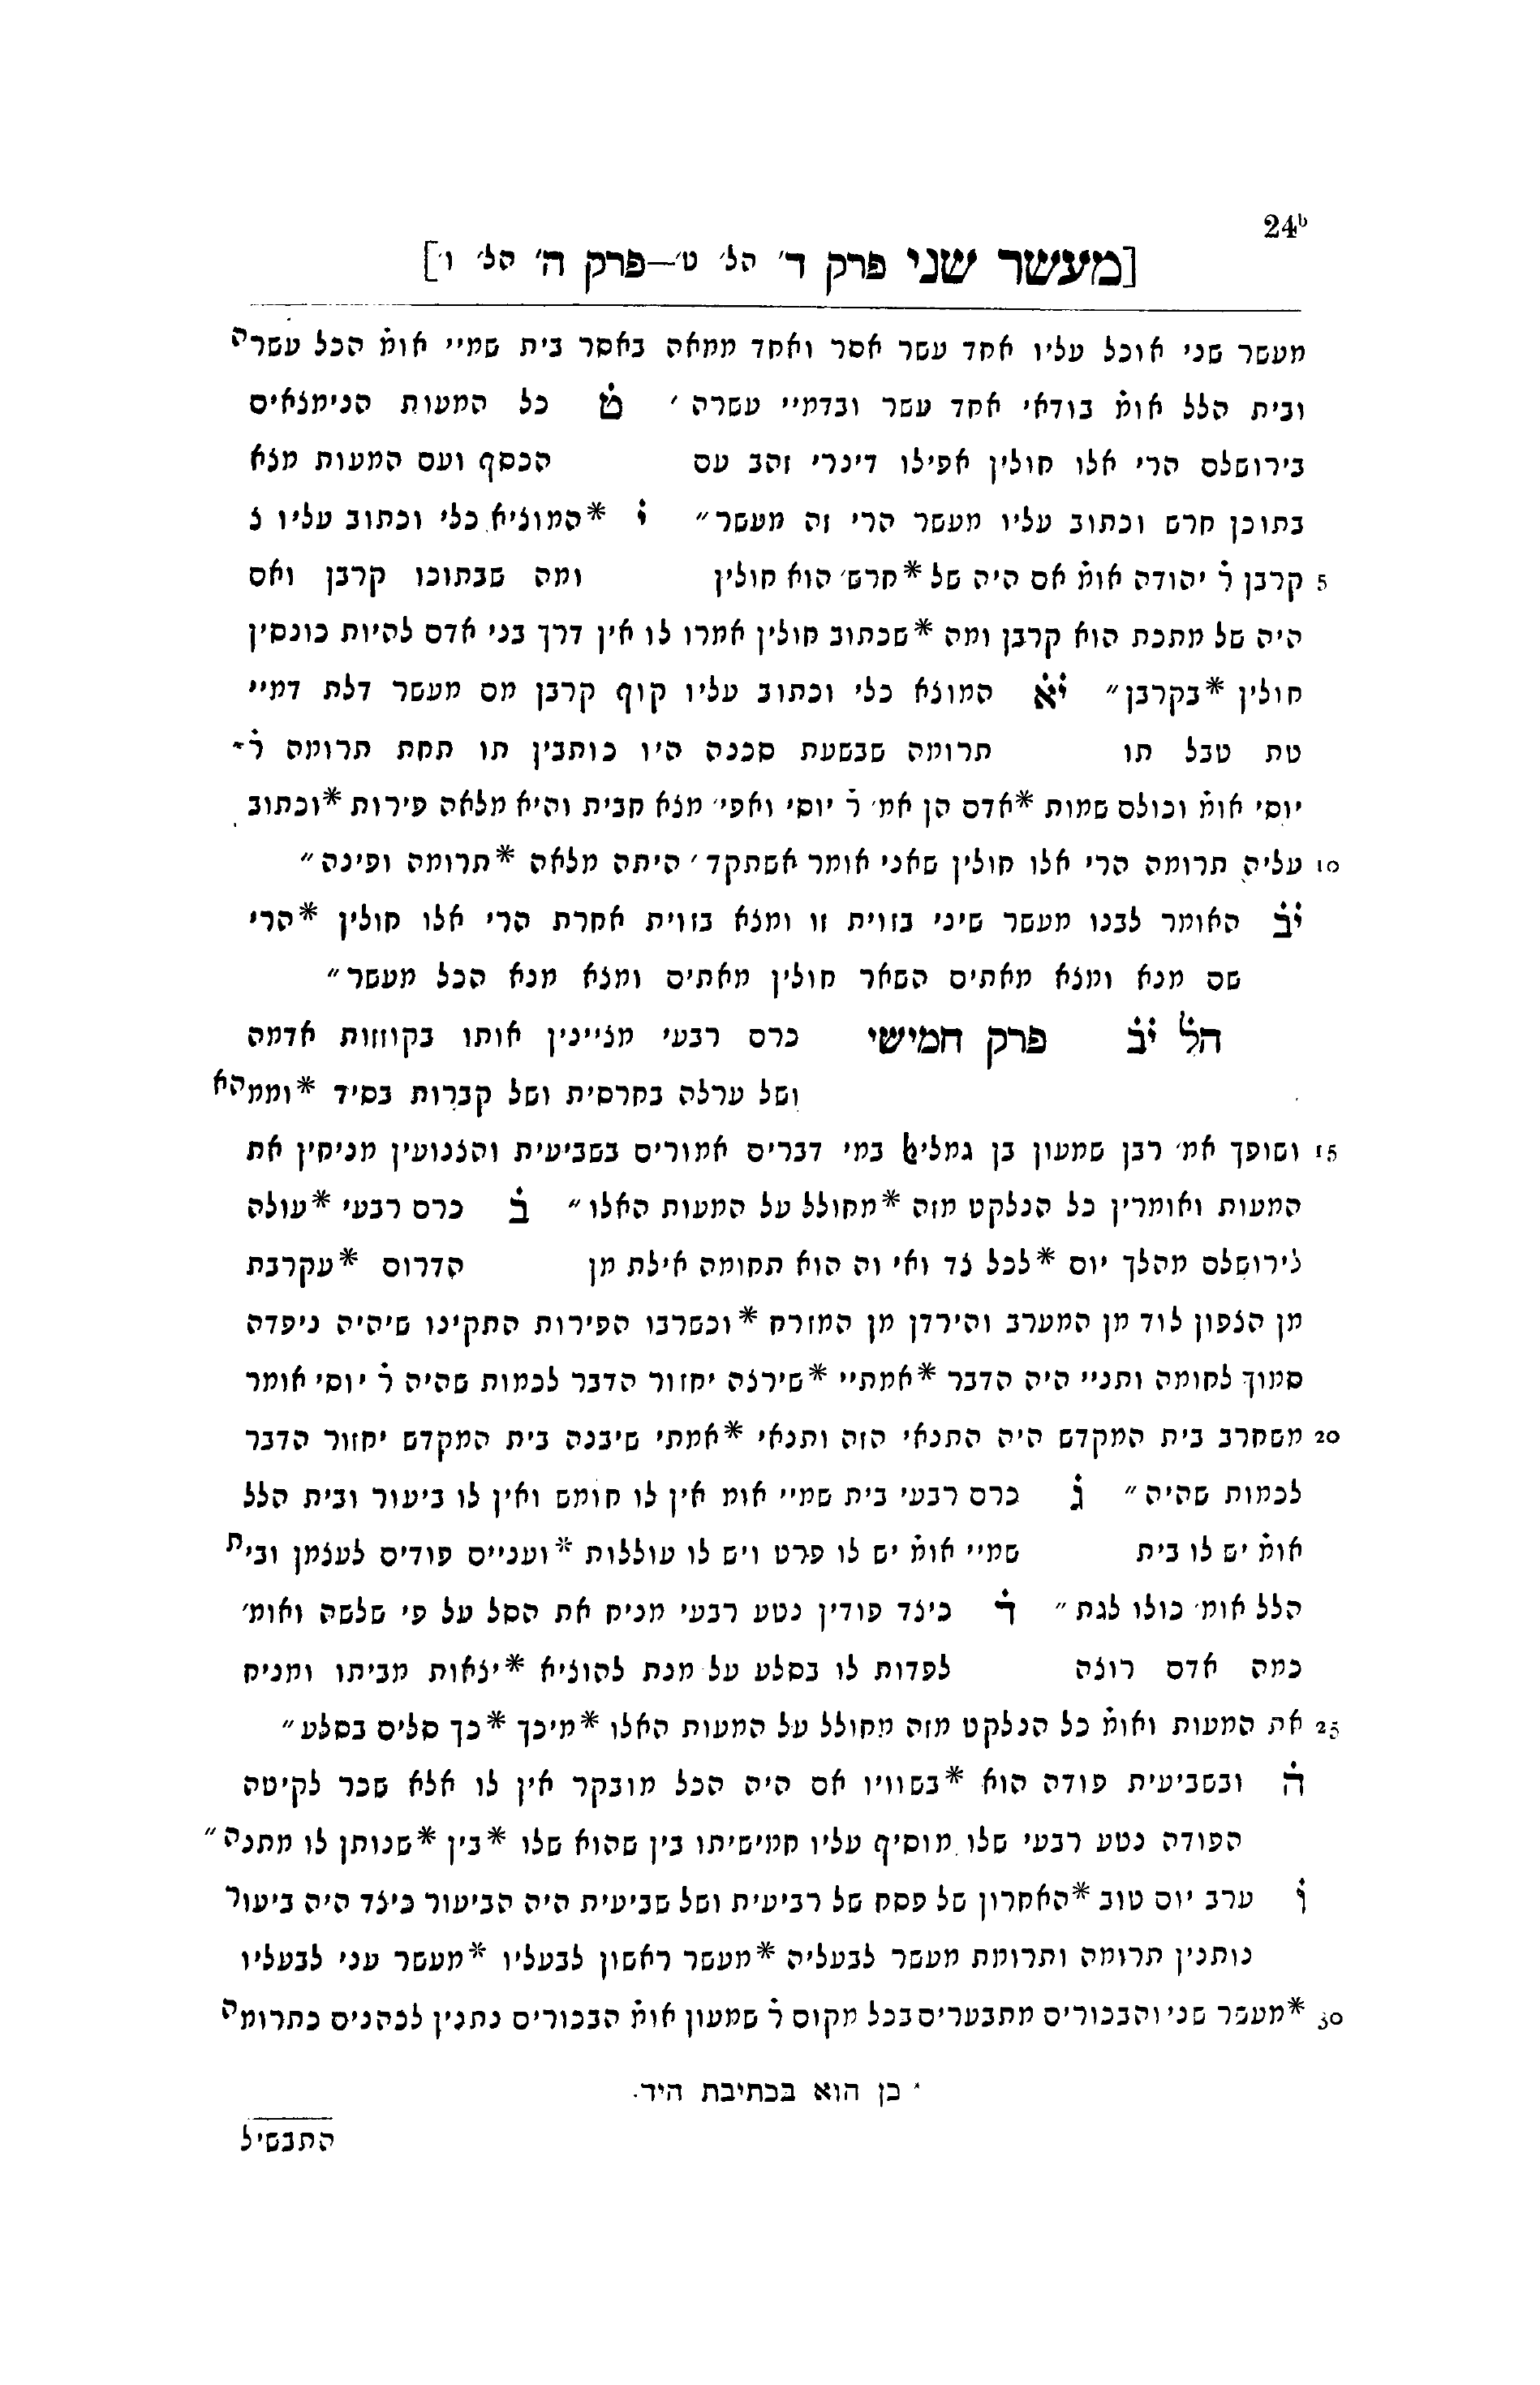 24ᵇ
[מעשר שני פרק ד׳ הל׳ ט׳—פרק ה׳ הל׳ ו׳]
מעשר שני אוכל עליו אחד עשר אסר ואחד ממאה באסר בית שמיי אומ̇ הכל עשרה
ובית הלל אומ̇ בודאי אחד עשר ובדמיי עשרה ׳ ט̇ כל המעות הנימצאים
בירושלם הרי אלו חולין אפילו דינרי זהב עם הכסף ועם המעות מצא
בתוכן חרש וכתוב עליו מעשר הרי זה מעשר״ י̇ *המוציא כלי וכתוב עליו צ
5 קרבן ר̇ יהודה אומ̇ אם היה של *חרש׳ הוא חולין ומה שבתוכו קרבן ואם
היה של מתכת הוא קרבן ומה *שכתוב חולין אמרו לו אין דרך בני אדם להיות כונסין
חולין *בקרבן״ י̇א̇ המוצא כלי וכתוב עליו קוף קרבן מם מעשר דלת דמיי
טת טבל תו תרומה שבשעת סכנה היו כותבין תו תחת תרומה ר̇*
יוסי אומ̇ וכולם שמות *אדם הן אמ׳ ר̇ יוסי ואפי׳ מצא חבית והיא מלאה פירות *וכתוב
10 עליה תרומה הרי אלו חולין שאני אומר אשתקד׳ היתה מלאה *תרומה ופינה״
י̇ב̇ האומר לבנו מעשר שיני בזוית זו ומצא בזוית אחרת הרי אלו חולין *הרי
שם מנא ומצא מאתים השאר חולין מאתים ומצא מנא הכל מעשר״
הל̇ י̇ב̇ פרק חמישי כרם רבעי מציינין אותו בקוזזות אדמה
ושל ערלה בחרסית ושל קברות בסיד *וממהא
15 ושופך אמ׳ רבן שמעון בן גמליﭏ במי דברים אמורים בשביעית והצנועין מניחין את
המעות ואומרין כל הנלקט מזה *מחולל על המעות האלו״ ב̇ כרם רבעי *עולה
לירושלם מהלך יום *לכל צד ואי וה הוא תחומה אילת מן הדרום *עקרבת
מן הצפון לוד מן המערב והירדן מן המזרח *וכשרבו הפירות התקינו שיהיה ניפדה
סמוך לחומה ותניי היה הדבר *אמתיי *שירצה יחזור הדבר לכמות שהיה ר̇ יוסי אומר
20 משחרב בית המקדש היה התנאי הזה ותנאי *אמתי שיבנה בית המקדש יחזור הדבר
לכמות שהיה״ ג̇ כרם רבעי בית שמיי אומ אין לו חומש ואין לו ביעור ובית הלל
אומ̇ יש לו בית שמיי אומ̇ יש לו פרט ויש לו עוללות *ועניים פודים לעצמן ובית
הלל אומ׳ כולו לגת״ ד̇ כיצד פודין נטע רבעי מניח את הסל על פי שלשה ואומ׳
כמה אדם רוצה לפדות לו בסלע על מנת להוציא *יצאות מביתו ומניח
25 את המעות ואומ̇ כל הנלקט מזה מחולל על המעות האלו *מיכך *כך סלים בסלע״
ה̇ ובשביעית פודה הוא *בשוויו אם היה הכל מובקר אין לו אלא שכר לקיטה
הפודה נטע רבעי שלו מוסיף עליו חמישיתו בין שהוא שלו *בין *שנותן לו מתנה״
ו̇ ערב יום טוב *האחרון של פסח של רביעית ושל שביעית היה הביעור כיצד היה ביעור
נותנין תרומה ותרומת מעשר לבעליה *מעשר ראשון לבעליו *מעשר עני לבעליו
30 *מעשר שני והבכורים מתבערים בכל מקום ר̇ שמעון אומ̇ הבכורים נתנין לכהנים כתרומה
* כן הוא בכתיבת היד.
התבשיל